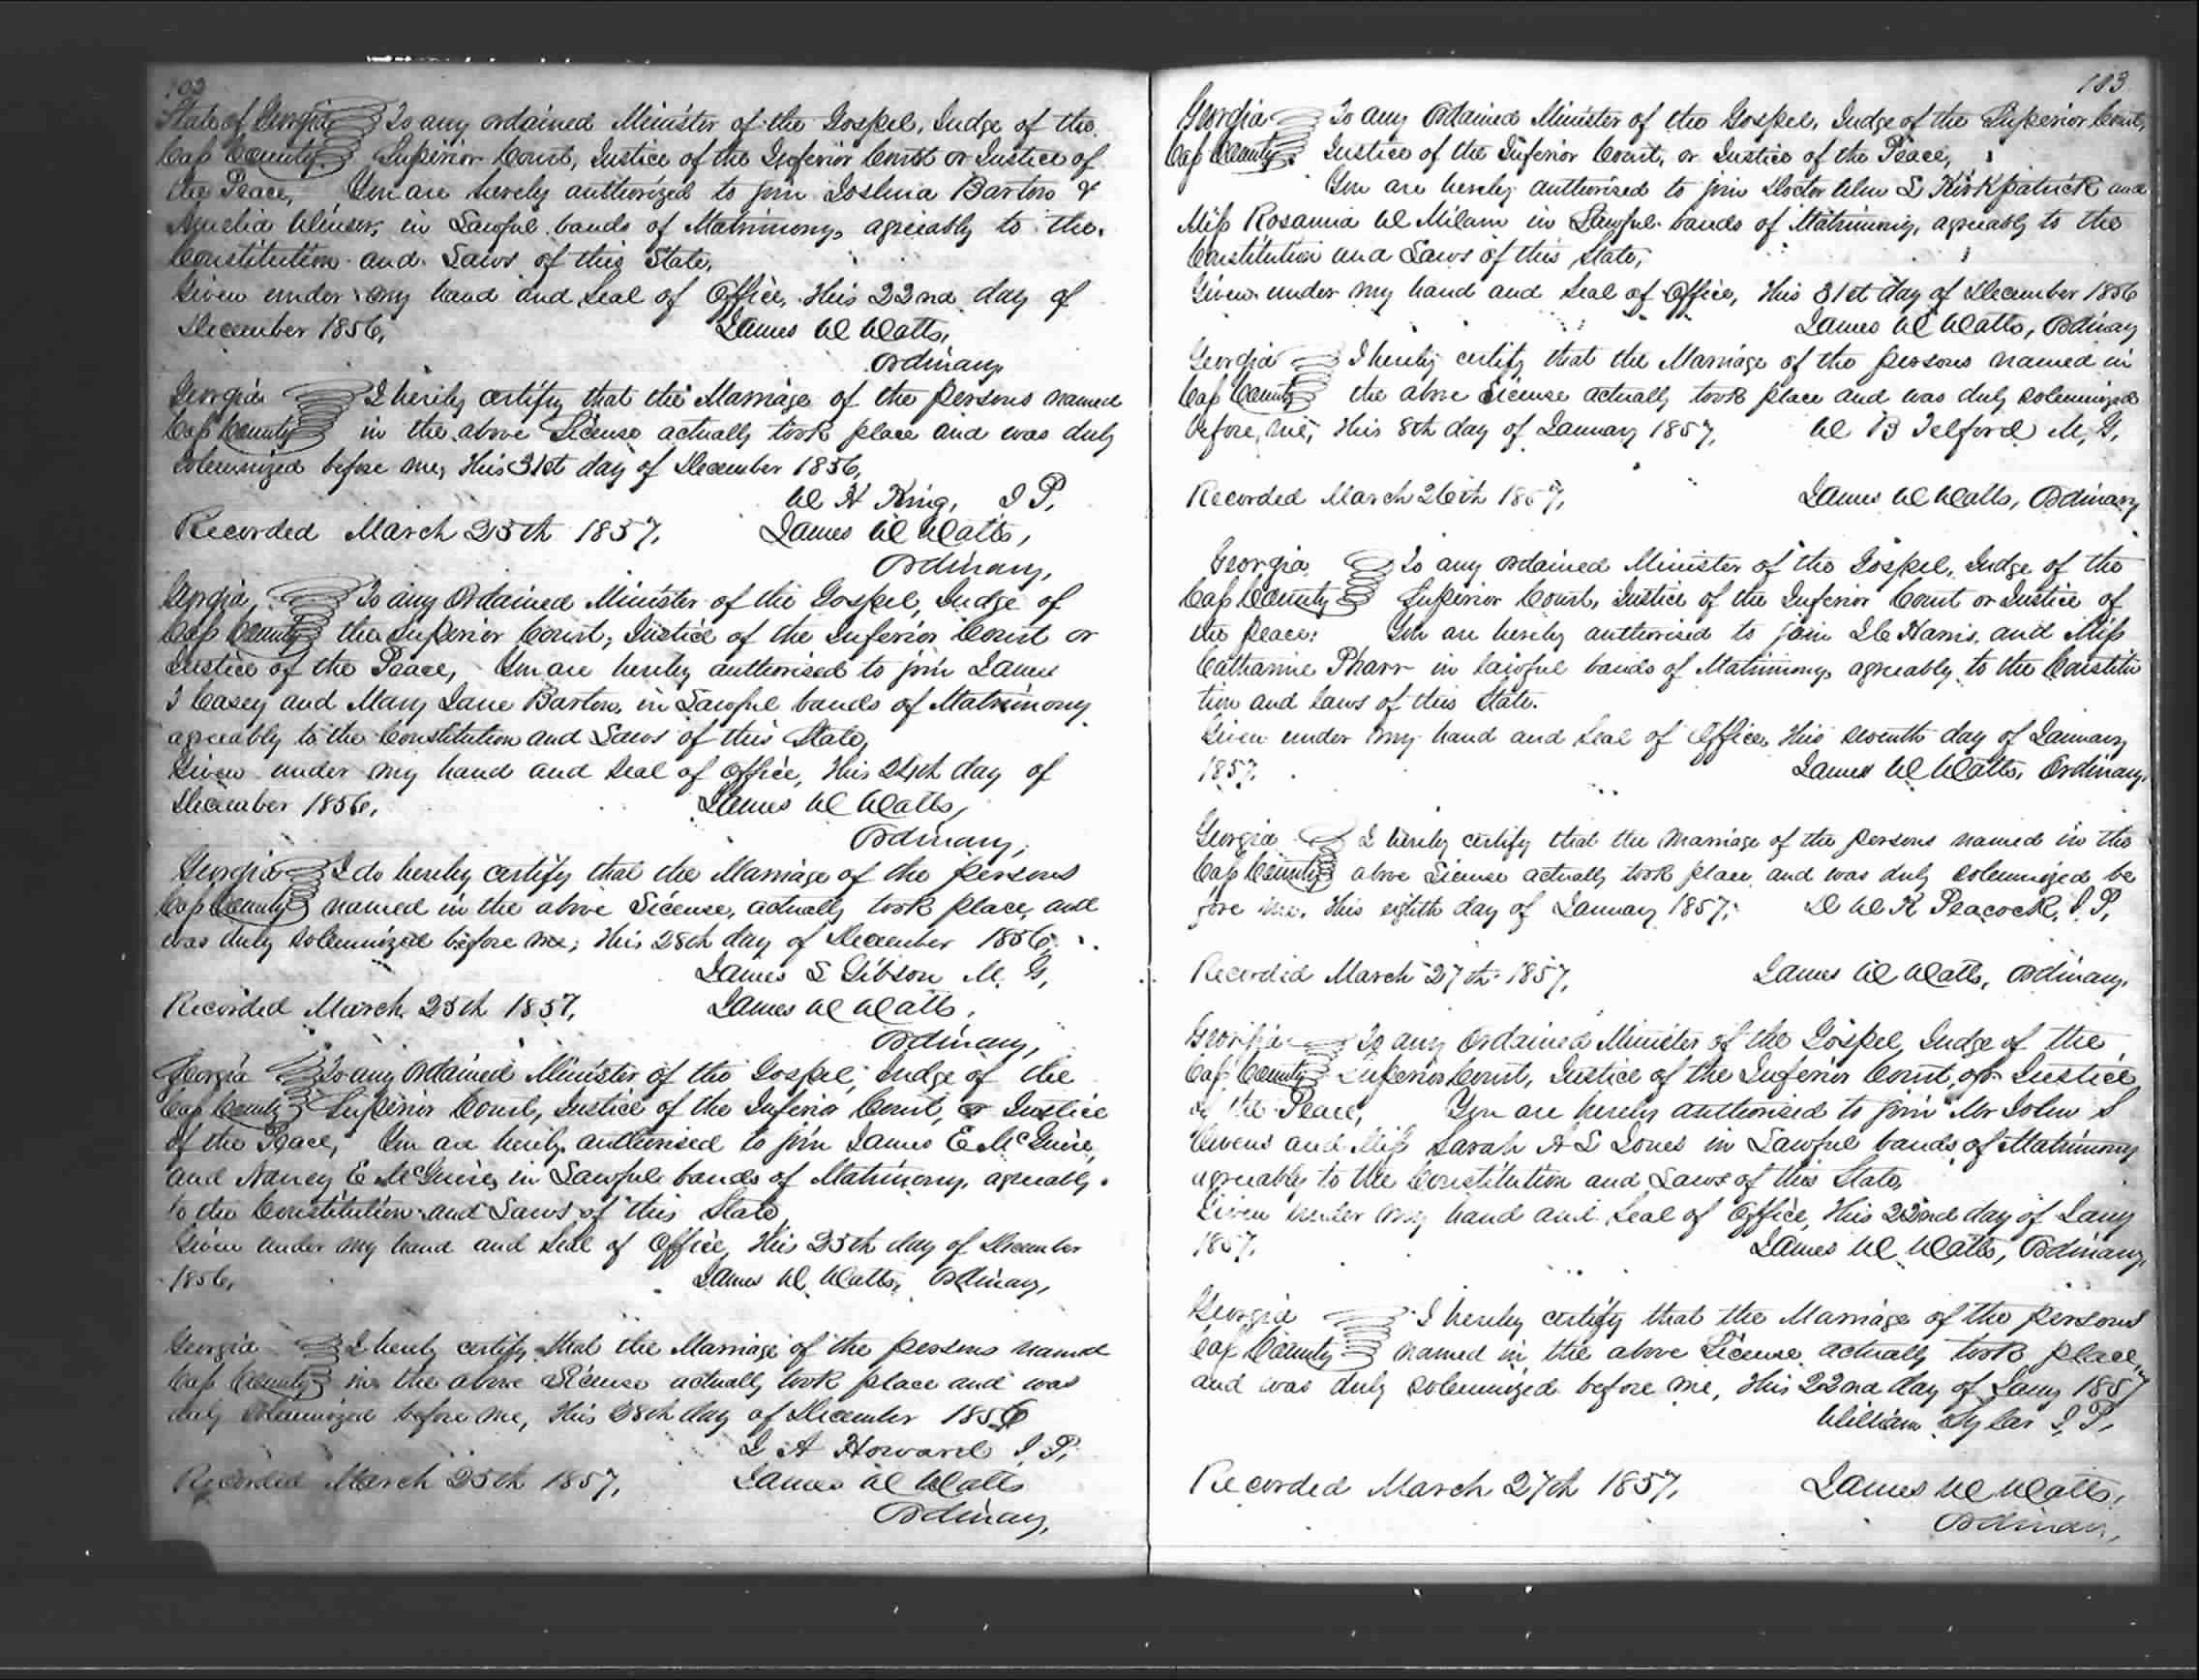 State of Georgia To any ordained Minister of the Gospel, Judge of the
Cass County Superior Court, Justice of the Inferior Court or Justice of
the Peace, You are hereby authorized to join Joshua Barton &
Amelia in Lawful bands of Matrimony, agreeably to the
Constitution and Laws of this State,
Given under my hand and seal of Office, this 22nd day of
December 1856, James W Watts,
Ordinary
Georgia I hereby certify that the Marriage of the persons named
Cass County in the above License actually took place and was duly
solemnized before me, this 31st day of December 1856,
W H King, J P,
Recorded March 25th 1857, James W Watts,
Ordinary,
Georgia, To any Ordained Minister of the Gospel, Judge of
Cass County the Superior Court, Justice of the Inferior Court or
Justice of the Peace, You are hereby authorised to join James
J Casey and Mary Jane Barton, in Lawful bands of Matrimony
agreeably to the Constitution and Laws of this State,
Given under my hand and seal of office, this 24th day of
December 1856, James W Watts,
Ordinary,
Georgia I do hereby certify that the Marriage of the persons
Cass County named in the above License, actually took place, and
was duly solemnized before me, this 28th day of December 1856,
James S Gibson M. G,
Recorded March 25th 1857, James W Watts,
Ordinary,
Georgia To any Ordained Minister of the Gospel, Judge of the
Cass County Superior Court, Justice of the Inferior Court, or Justice
of the Peace, You are hereby authorised to join James E McGuire,
and Nancy E McGuire, in Lawful bands of Matrimony, agreeably
to the Constitution and Laws of this State
Given under my hand and seal of Office, this 25th day of December
1856, James W Watts, Ordinary,
Georgia I hereby certify that the Marriage of the persons named
Cass County in the above License actually took place and was
duly solemnized before me, this 28th day of December 1856
A Howard J P,
Recorded March 25th 1857, James W Watts
Ordinary,
183
Georgia To any Ordained Minister of the Gospel, Judge of the Superior Court,
Cass County Justice of the Inferior Court, or Justice of the Peace,
You are hereby authorised to join Doctor Wm L Kirkpatrick and
Miss Rosanna W Milam in Lawful bands of Matrimony, agreeably to the
Constitution and Laws of this State,
Given under my hand and seal of Office, this 31st day of December 1856
James W Watts, Ordinary
Georgia I hereby certify that the Marriage of the persons named in
Cass County the above License actually took place and was duly solemnized
before me, this 8th day of January 1857, W B Telford M, G,
Recorded March 26th 1857, James W Watts, Ordinary
Georgia To any ordained Minister of the Gospel, Judge of the
Cass County Superior Court, Justice of the Inferior Court or Justice of
the peace: You are hereby authorised to join Harris, and Miss
Catharine Pharr in lawful bands of Matrimony, agreeably to the Constitu
tion and laws of this State.
Given under my hand and seal of Office, this seventh day of January
1857, James W Watts, Ordinary,
Georgia I hereby certify that the marriage of the persons named in the
Cass County above License actually took place, and was duly solemnized be
fore me, this eighth day of January 1857, D W K Peacock, J P,
Recorded March 27th 1857, James W Watts, Ordinary,
Georgia To any Ordained Minister of the Gospel, Judge of the
Cass County Superior Court, Justice of the Inferior Court, or Justice
of the Peace, You are hereby authorised to join Mr John S
Owens and Miss Sarah A S Jones in Lawful bands of Matrimony
agreeably to the Constitution and Laws of this State,
Given under my hand and seal of Office, this 22nd day of Jany
1857, James W Watts, Ordinary,
Georgia I hereby certify that the Marriage of the persons
Cass County named in the above License actually took place,
and was duly solemnized before me, this 22nd day of Jany 1857
William J, P,
Recorded March 27th 1857, James W Watts,
Ordinary,